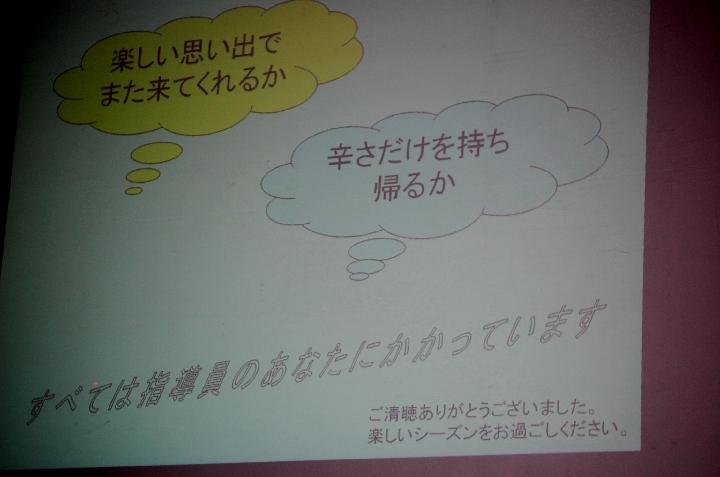 楽しい思い出で
また来てくれるか
辛さだけを持ち
帰るか
すべては指導員のあなたにかかっています
ご清聴ありがとうございました。
楽しいシーズンをお過ごしください。